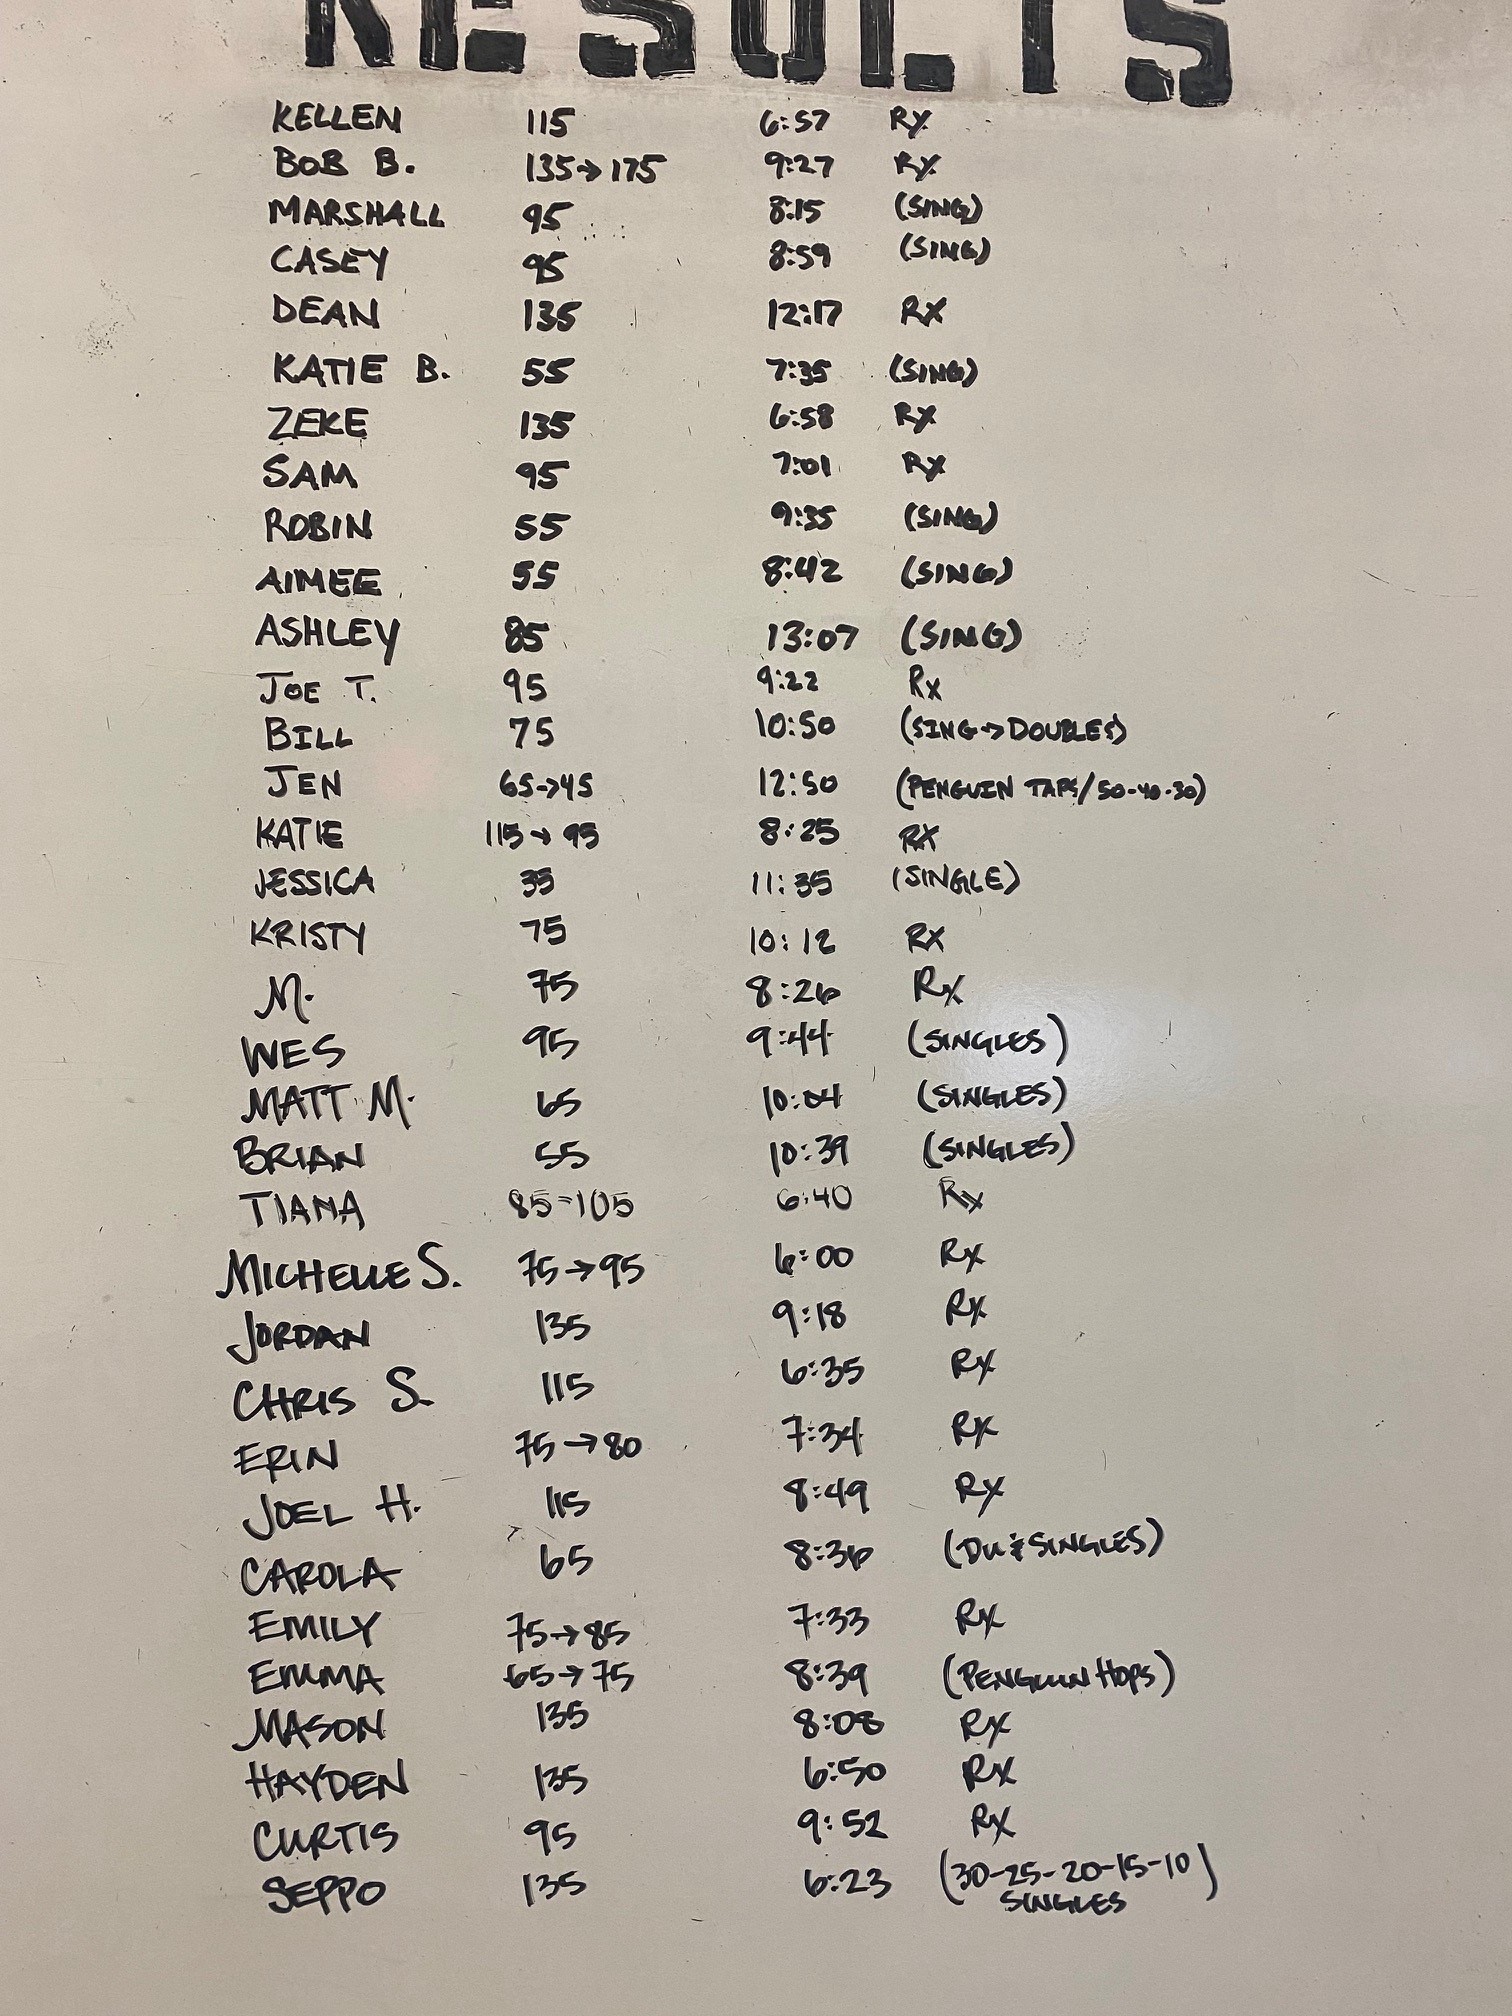 RESULTS
KELLEN 115 6:57 Rx
BOB B. 135→175 9:27 Rx
MARSHALL 95 8:15 (SING)
CASEY 95 8:59 (SING)
DEAN 135 12:17 RX
KATIE B. 55 7:35 (SING)
ZEKE 135 6:58 RX
SAM 95 7:01 RX
ROBIN 55 9:35 (SING)
AIMEE 55 8:42 (SING)
ASHLEY 85 13:07 (SING)
JOE T. 95 9:22 Rx
BILL 75 10:50 (SING→DOUBLES)
JEN 65→45 12:50 (PENGUIN TAPS/50-40-30)
KATIE 115→95 8:25 RX
JESSICA 35 11:35 (SINGLE)
KRISTY 75 10:12 RX
M. 75 8:26 Rx
WES 95 9:44 (SINGLES)
MATT M. 65 10:04 (SINGLES)
BRIAN 55 10:39 (SINGLES)
TIANA 85-105 6:40 Rx
MICHELLE S. 75→95 6:00 Rx
JORDAN 135 9:18 Rx
CHRIS S. 115 6:35 Rx
ERIN 75→80 7:34 Rx
JOEL H. 115 8:49 Rx
CAROLA 65 8:36 (DU & SINGLES)
EMILY 75→85 7:33 Rx
EMMA 65→75 8:39 (PENGUIN HOPS)
MASON 135 8:08 Rx
HAYDEN 135 6:50 Rx
CURTIS 95 9:52 Rx
SEPPO 135 6:23 (30-25-20-15-10)
SINGLES